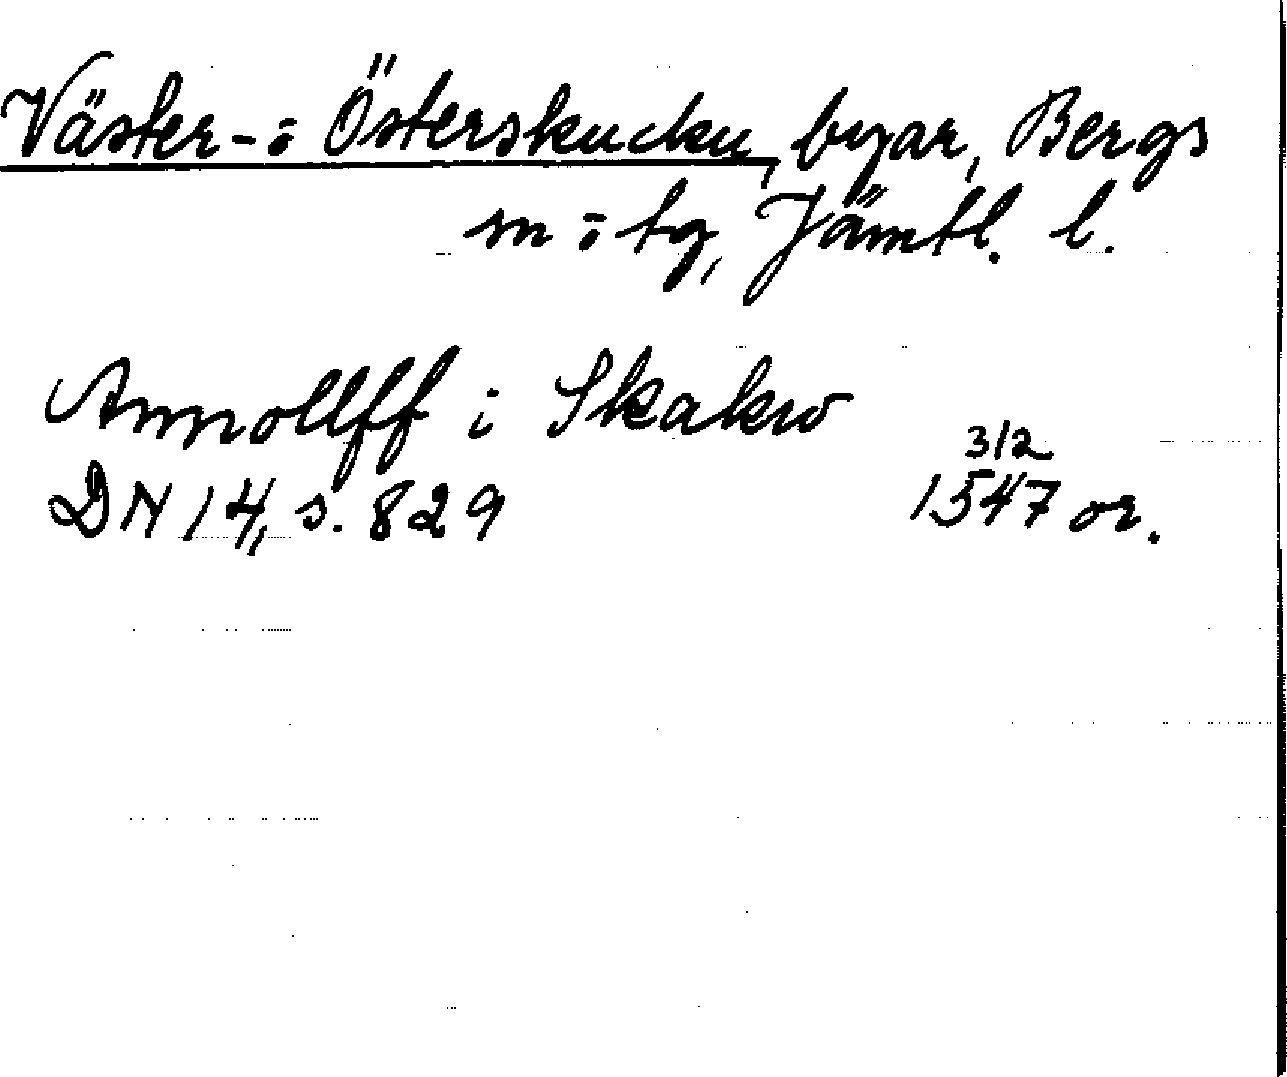 Väster- o Österskucku, byar, Bergs
sn o tg, Jämtl. l.
Annollff i Skakw
3/2
DN 14, s. 829 1547 or.